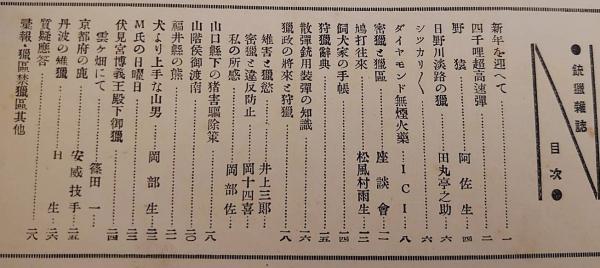 ●銃獵雜誌
目次●
新年を迎へて……一
四千哩超高速彈……二
野猿……阿佐生…四
日野川淡路の獵……田丸亭之助…六
シツカリ〱……六
ダイヤモンド無煙火藥……ICI…八
密獵と獵區……座談會…一一
鳩打往來……松風村雨生…一三
飼犬家の手帳……一四
狩獵辭典……一五
散彈銃用裝彈の知識……一六
獵政の將來と狩獵……一八
雉害と獵慾……井上三郎
密獵と違反防止……岡十四喜
私の所感……岡部佐
山口縣下の猪害驅除策……一八
山階侯御渡南……二〇
福井縣の熊……二一
犬より上手な山男……岡部生…二三
M氏の日曜日……二三
伏見宮博義王殿下御獵……二四
雲ヶ畑にて……篠田一
京都府の鹿……安威技手…二五
丹波の雉獵……H生…二六
質疑應答……二六
彙報・獵區禁獵區其他……二八